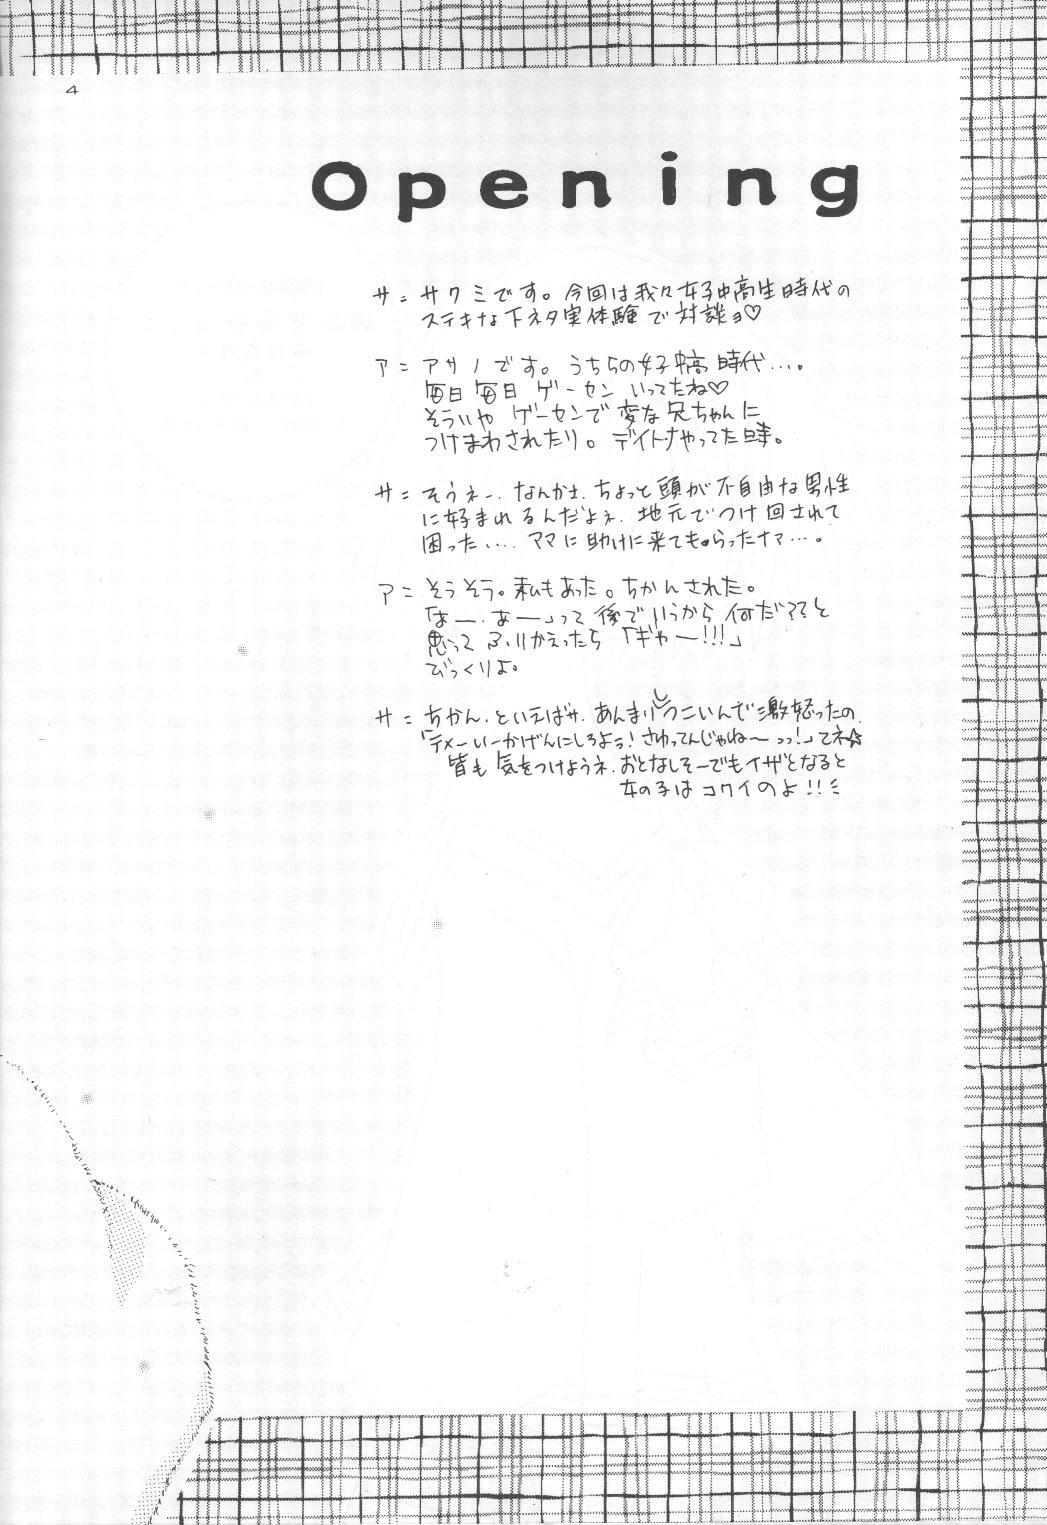 4
Opening
サ＝サクミです。今回は我々女子中高生時代の
ステキな下ネタ実体験で対談ョ♡
ア＝アサノです。うちらの女子中高時代…。
毎日毎日ゲーセンいってたね♡
そういやゲーセンで変な兄ちゃんに
つけまわされたり。デイトナやってた時。
サ＝そうネー、なんかさ、ちょっと頭が不自由な男性
に好まれるんだよネ、地元でつけ回されて
困った…、ママに助けに来てもらったナァ…。
ア＝そうそう。私もあった。ちかんされた。
「はー、あー」って後でいうから何だ??と
思ってふりかえったら「ギャー!!!」
びっくりよ。
サ＝ちかん、といえばサ、あんまりしつこいんで激怒ったの、
「テメーいーかげんにしろよっ!さわってんじゃねーっっ!」ってネ☆
皆も気をつけようネ、おとなしそーでもイザとなると
女の子はコワイのよ!!